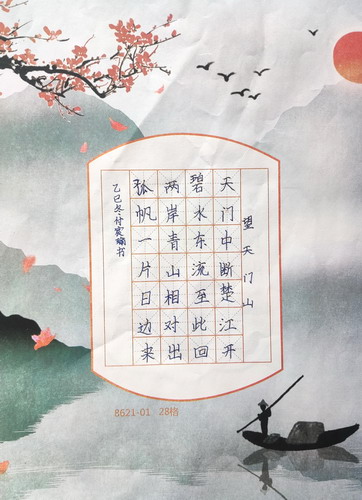 望天门山
天门中断楚江开
碧水东流至此回
两岸青山相对出
孤帆一片日边来
乙巳冬付奕瑜书
8621-01 28格